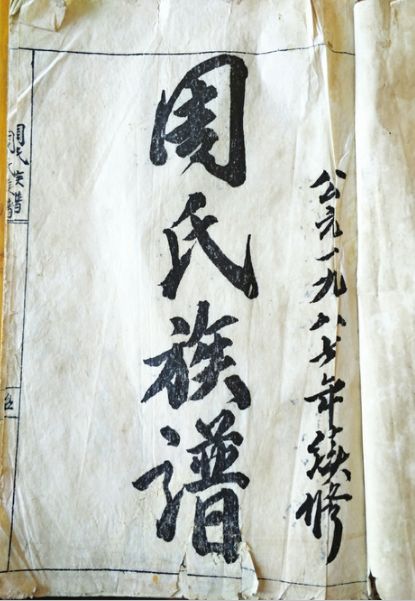 公元一九八七年续修
周氏族譜
周氏族譜